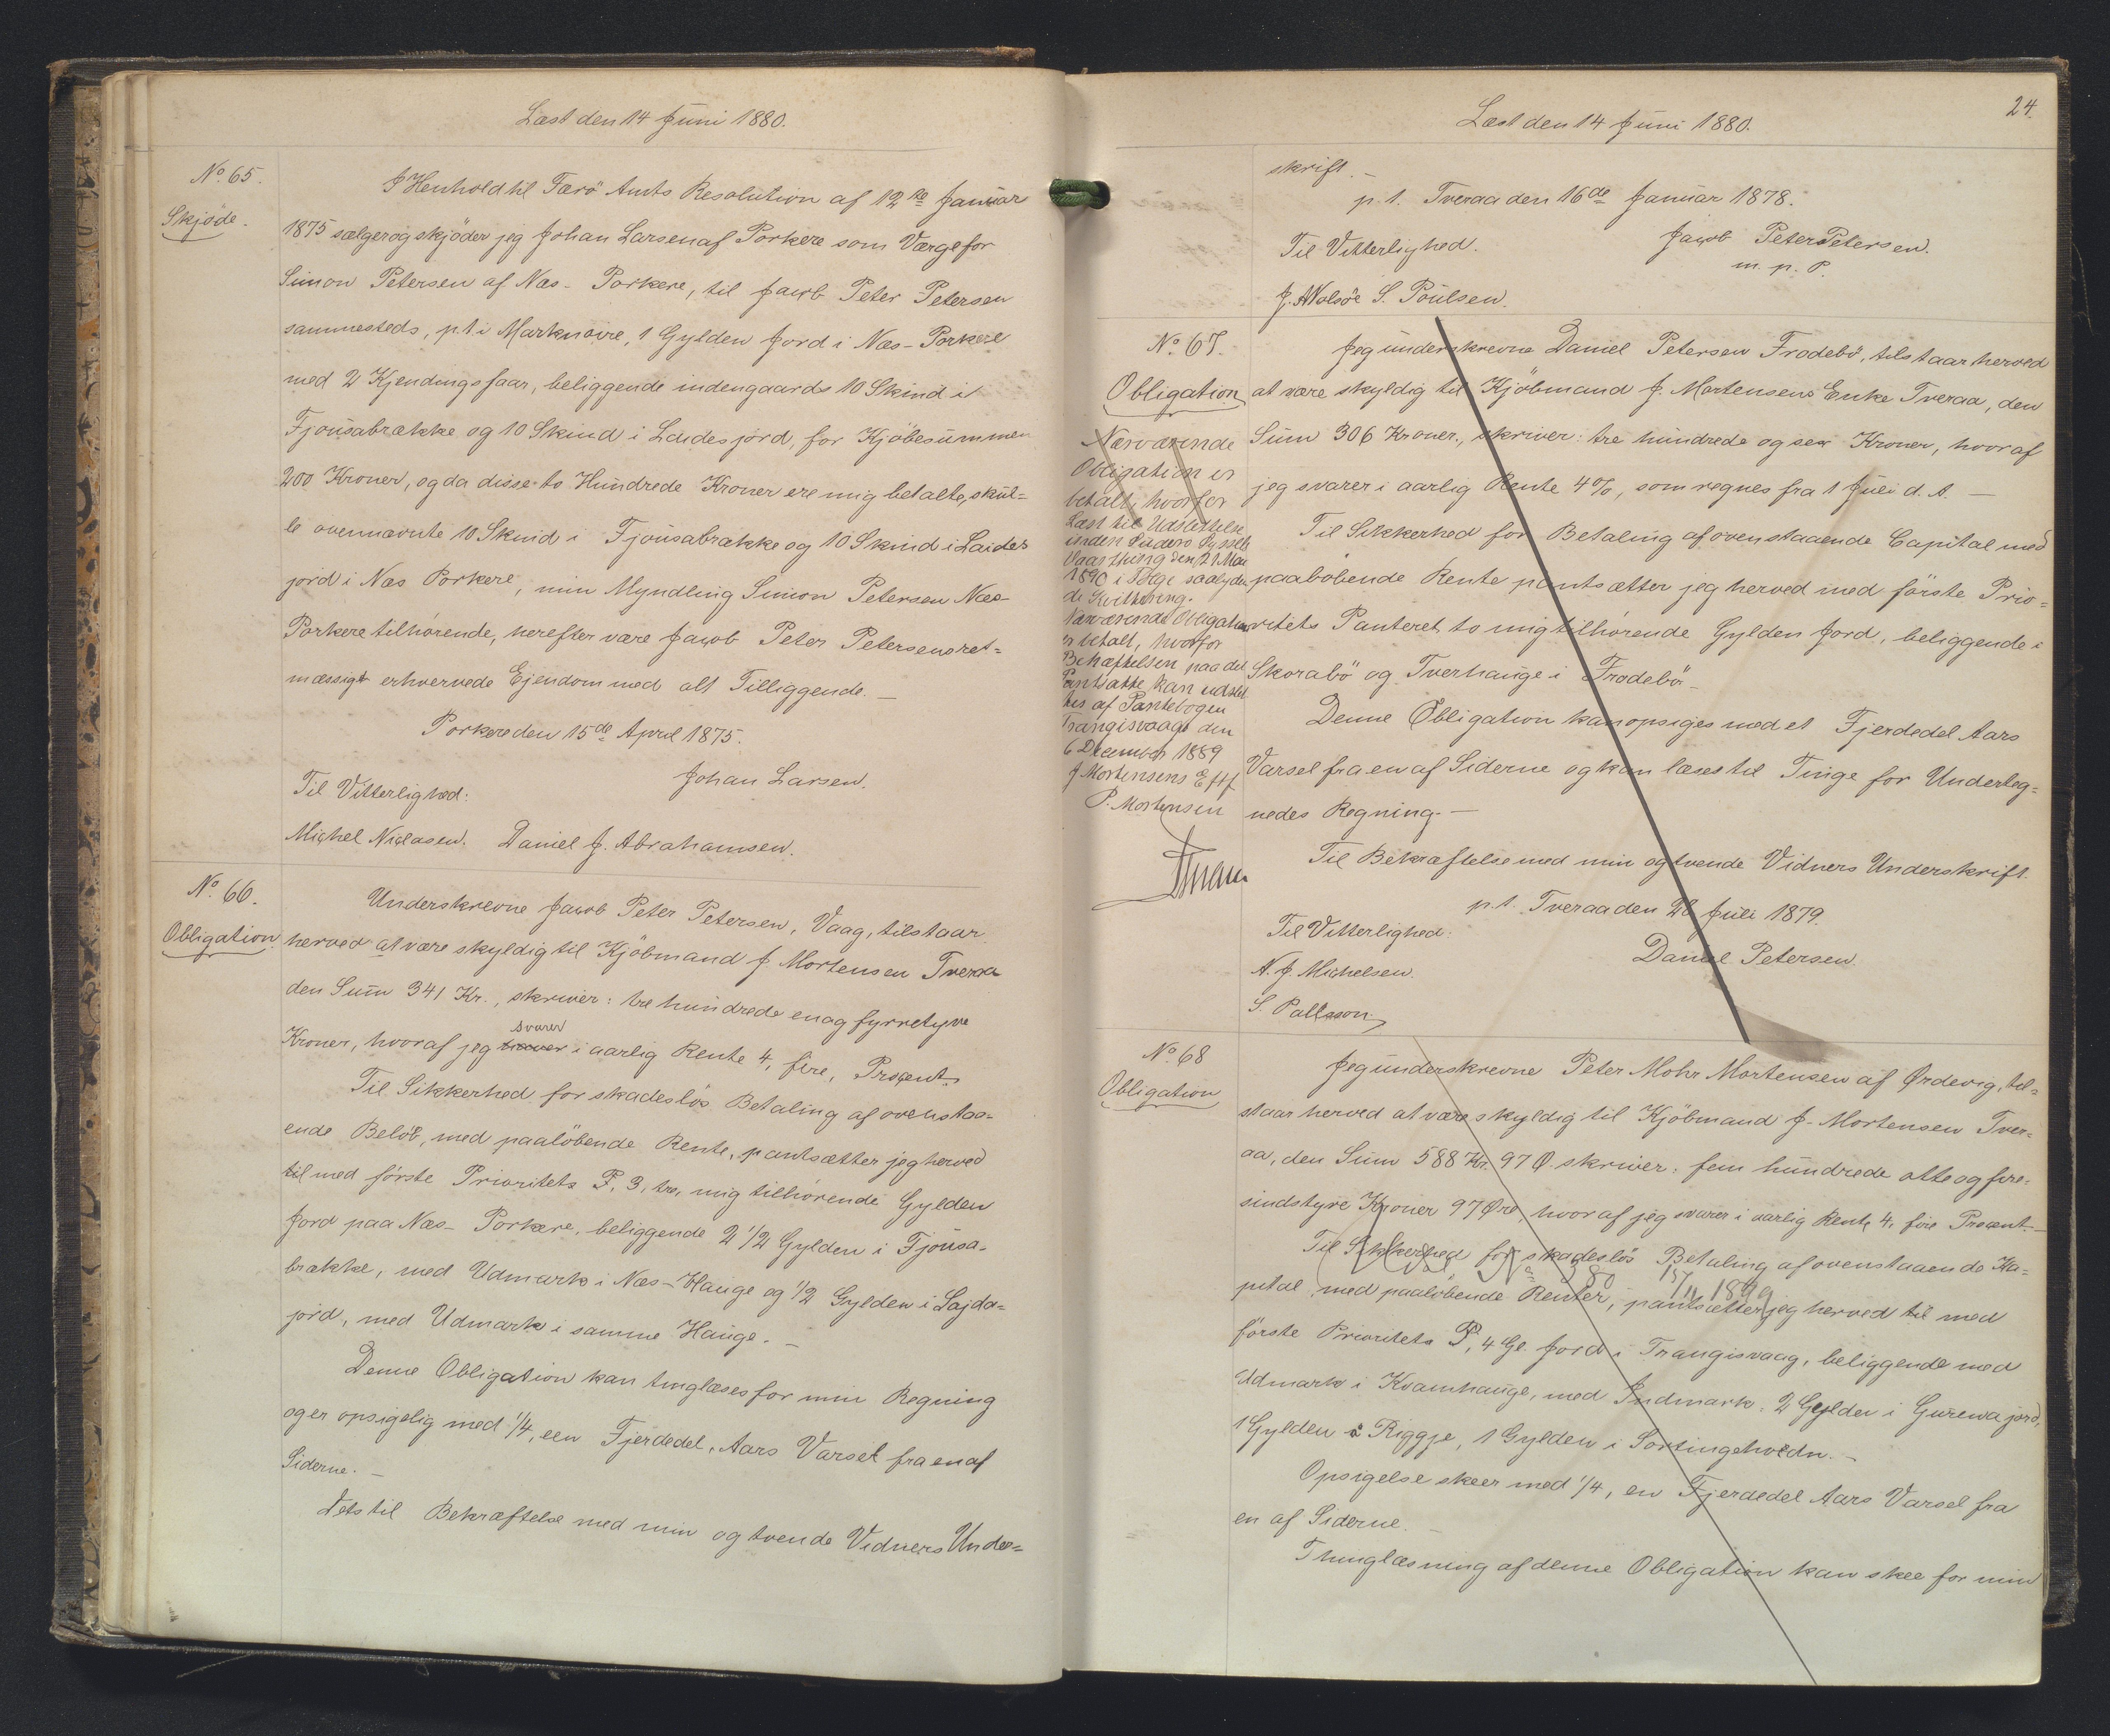 Læst den 14 Juni 1880.
No. 65.
Skjöde.
I Henhold til Færö Amts Resolution af 12te Januar
1875 sælger og skjöder jeg Johan Larsen af Porkere som Værge for
Simon Petersen af Næs-Porkere, til Jacob Peter Petersen
sammesteds, p. t. i Marknoire, 1 Gylden Jord i Næs-Porkere
med 2 Kjendingsfaar, beliggende indengaards 10 Skind i
Fjousabrække og 10 Skind i Laidesjord, for Kjöbesummen
200 Kroner, og da disse to Hundrede Kroner ere mig betalte, skul=
le ovennævnte 10 Skind i Fjousabrække og 10 Skind i Laides
jord i Næs Porkere, min Myndling Simon Petersen Næs-
Porkere tilhørende, herefter være Jacob Peter Petersens ret=
mæssigt erhvervede Ejendom med alt Tilliggende. —
Porkere den 15de April 1875.
Johan Larsen.
Til Vitterlighed:
Michel Niclasen. Daniel J. Abrahamsen.
No. 66.
Obligation.
Underskrevne Jacob Peter Petersen, Vaag, tilstaar
herved at være skyldig til Kjöbmand J. Mortensen Tveraa
den Sum 341 Kr., skriver: tre hundrede en og fyrretyve
svarer
Kroner, hvoraf jeg i aarlig Rente 4, fire, Procent.
Til Sikkerhed for skadeslös Betaling af ovenstaa-
ende Belöb, med paalöbende Rente, pantsætter jeg herved
til med förste Prioritets P. 3, tre, mig tilhørende Gylden
Jord paa Næs-Porkere, beliggende 2 1/2 Gylden i Fjousa-
brække, med Udmark i Næs-Hauge og 1/2 Gylden i Lajda=
jord, med Udmark i samme Hauge. —
Denne Obligation kan tinglæses for min Regning
og er opsigelig med 1/4, een Fjerdedel, Aars Varsel fra en af
Siderne. —
Dets til Bekræftelse med min og tvende Vidners Under=
24.
Læst den 14 Juni 1880.
skrift. —
p. t. Tveraa den 16de Januar 1878.
Jacob Peter Petersen.
m. p. P.
Til Vitterlighed.
J. A Nolsöe S. Poulsen.
No. 67.
Obligation
Jeg underskrevne Daniel Petersen Frodebö, tilstaar herved
at være skyldig til Kjöbmand J. Mortensens Enke Tveraa, den
Sum 306 Kroner., skriver: tre hundrede og sex Kroner, hvoraf
jeg svarer i aarlig Rente 4%, som regnes fra 1 Juli d. A. —
Til Sikkerhed for Betaling af ovenstaaende Capital med
paalöbende Rente pantsætter jeg herved med förste Prio=
ritets Panteret to mig tilhörende Gylden Jord, beliggende i
Skorabö og Tverhauge i Frodebö —
Denne Obligation kan opsiges med et Fjerdedel Aars
Varsel fra en af Siderne og kan læses til Tinge for Underteg=
nedes Regning. —
Til Bekræftelse med min og tvende Vidners Underskrift.
p. t. Tveraa den 26 Juli 1879.
Daniel Petersen.
Til Vitterlighed:
N. J. Michelsen.
S. Pallsson.
Nærværende
Obligation er
betalt, hvorfor
Læst til Udslettelse
inden Suderö Syssels
Vaarthing den 21 Mai
1890 i Følge saalyden
de Kvittering.
Nærværende Obligation
er betalt, hvorfor
Behæftelsen paa det
Pantsatte kan udslet
tes af Pantebogen
Trangisvaag den
6 December 1889
J Mortensens Eftf
P. Mortensen
No. 68
Obligation
Jeg underskrevne Peter Mohr Mortensen af Ørdevig, til=
staar herved at være skyldig til Kjöbmand J. Mortensen Tver=
aa, den Sum 588 Kr. 97 Ø. skriver: fem hundrede otte og fire=
sindstyve Kroner 97 Øre, hvoraf jeg svarer i aarlig Rente 4, fire Procent. —
Til Sikkerhed for skadeslös Betaling af ovenstaaende Ka=
pital med paalöbende Renter, pantsætter jeg herved til med
förste Prioritets P, 4 Gl. Jord i Trangisvaag, beliggende med
Udmark i Kvamhauge, med Indmark: 2 Gylden i Gurewajord,
1 Gylden a Riggje, 1 Gylden i Sortingehvedn. —
Opsigelse skeer med 1/4, en Fjerdedel Aars Varsel fra
en af Siderne. —
Thinglæsning af denne Obligation kan skee for min